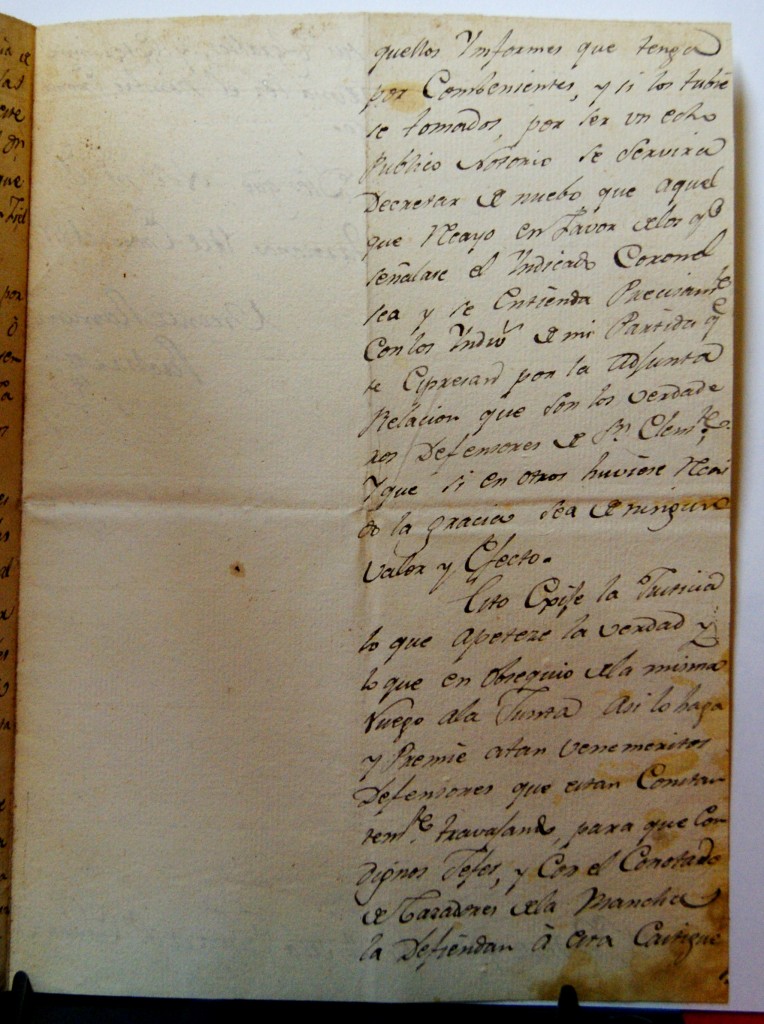 quellos Ynformes que tenga
por Combenientes, y si los tubie
se tomados, por ser un echo
Publico Notorio se servira
Decretar de nuebo, que aquel
que Recayo en favor de los qe
señalase el Yndicado Coronel
sea y se Entienda Precisamte
Con los Yndivs de mi Partida qe
se Expresan por la adjunta
Relacion que son los verdade
ros Defensores de Sn Clemte
Y que si en otros huviese Recai
do la gracia sea de ningun
valor y Efecto.
Esto Exije la Justicia
lo que apeteze la verdad y
lo que en obsequio de la misma
Ruego a la Junta Asi lo haga
y Premie atan venemeritos
Defensores que estan Constan
temte travajando, para que Con
dignos Jefes, y Con el
de Cazadores de la Mancha
la Defiendan à esta